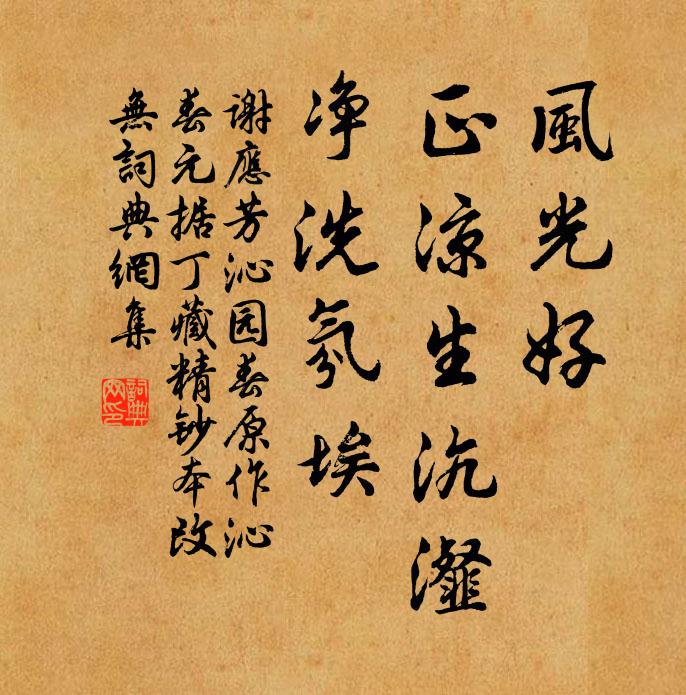 風光好
正凉生沆瀣
净洗氛埃
謝應芳沁园春原作沁
春元据丁藏精鈔本改
無詞典網集
詞典網印